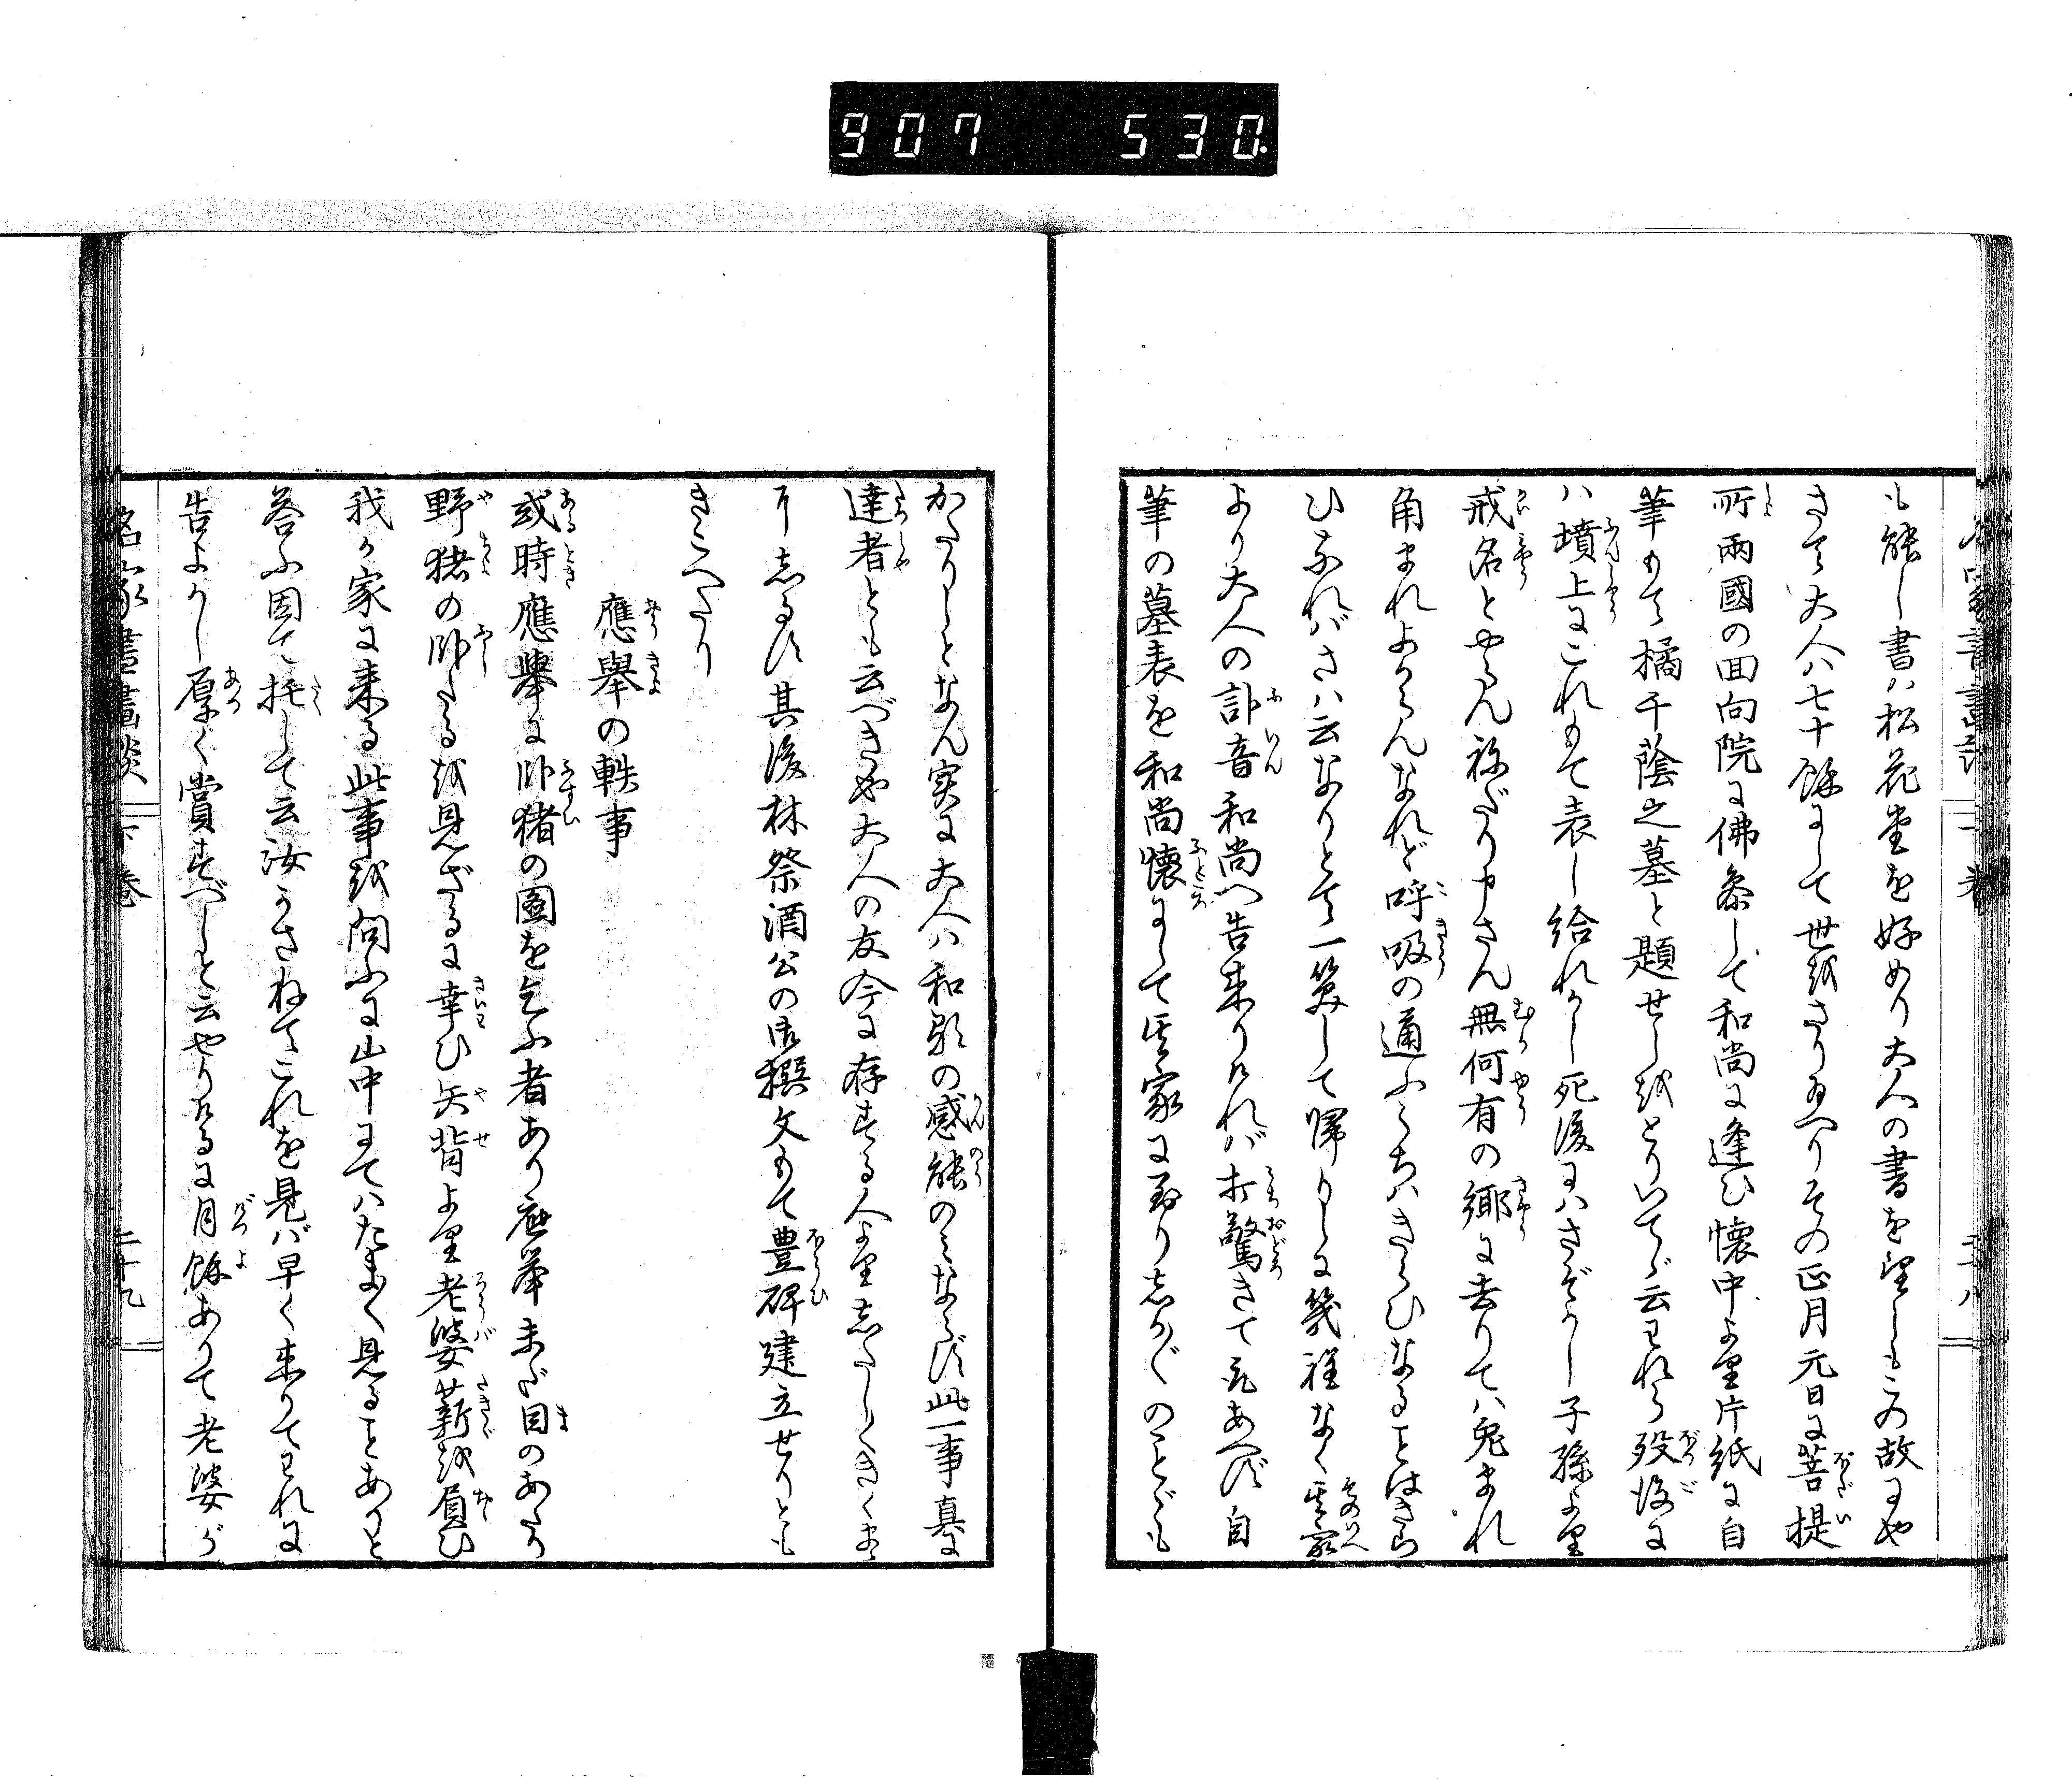 907 530.
も能し書ハ松花堂を好めり大人の書を望しもこの故にや
さて大人ハ七十餘にして世をさり玉へりその正月元日に菩提
所兩國の回向院に佛參して和尚に逢ひ懷中より片紙に自
筆もて橘千蔭之墓と題せしをとりいでゝ云われら歿後に
ハ墳上にこれもて表し給れかし死後にハさぞかし子孫より
戒名とやらんねだり申さん無何有の郷に去りてハ兎まれ
角まれよからんなれど呼吸の通ふうちハきらひなることはきら
ひなれバさハ云なりとて一笑して帰りしに幾程なく其家
より大人の訃音和尚へ告来りけれバ打驚きて取あへず自
筆の墓表を和尚懷にして其家に到りしか〴〵のことども
かたりしとなん実に大人ハ和歌の感能のみならず此一事真に
達者とも云べきや大人の友今に存する人よりしたしくきくま
印しるす其後林祭酒公の御撰文もて豊碑建立せりとも
きこへたり
應舉の軼事
或時應舉に臥猪の圖を乞ふ者あり應挙まだ目のあたり
野猪の臥たるを見ざるに幸ひ矢背より老婆薪を負ひ
我が家に来る此事を問ふに山中にてハたま〳〵見ることありと
答ふ因て托して云汝かさねてこれを見バ早く来りてわれに
告よかし厚く賞すべしと云やりけるに月餘ありて老婆が
名家書畫談 下巻 二十九